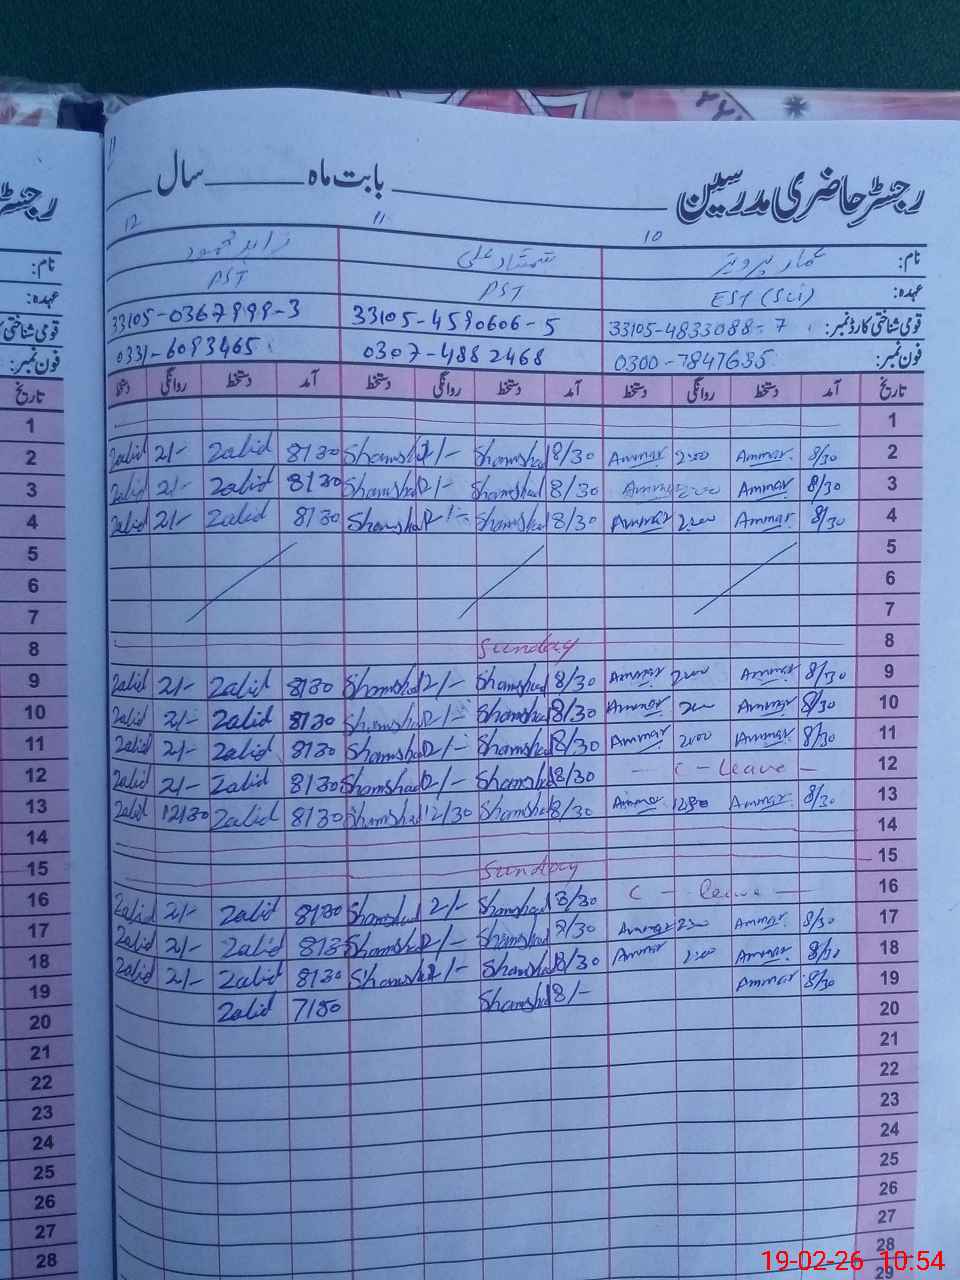 رجسٹر حاضری مدرسین بابت ماہ سال
12 11 10
نام: عمار پرویز شمشاد علی زاہد محمود
عہدہ: EST (Sci) PST PST
قومی شناختی کارڈ نمبر: 33105-4833088-7 33105-4590606-5 33105-0367999-3
فون نمبر: 0300-7847635 0307-4882468 0331-6093465
تاریخ آمد دستخط روانگی دستخط آمد دستخط روانگی دستخط آمد دستخط روانگی دستخط تاریخ
1 1
2 Zahid 2/- Zahid 8/30 Shamshad 2/- Shamshad 8/30 Ammar 2:00 Ammar 8/30 2
3 Zahid 2/- Zahid 8/30 Shamshad 2/- Shamshad 8/30 Ammar 2:00 Ammar 8/30 3
4 Zahid 2/- Zahid 8/30 Shamshad 2/- Shamshad 8/30 Ammar 2:00 Ammar 8/30 4
5 5
6 6
7 7
8 Sunday 8
9 Zahid 2/- Zahid 8/30 Shamshad 2/- Shamshad 8/30 Ammar 2:00 Ammar 8/30 9
10 Zahid 2/- Zahid 8/30 Shamshad 2/- Shamshad 8/30 Ammar 2:00 Ammar 8/30 10
11 Zahid 2/- Zahid 8/30 Shamshad 2/- Shamshad 8/30 Ammar 2:00 Ammar 8/30 11
12 Zahid 2/- Zahid 8/30 Shamshad 2/- Shamshad 8/30 - C - Leave - 12
13 Zahid 12/30 Zahid 8/30 Shamshad 12/30 Shamshad 8/30 Ammar 12:30 Ammar 8/30 13
14 14
15 Sunday 15
16 Zahid 2/- Zahid 8/30 Shamshad 2/- Shamshad 8/30 C - leave - 16
17 Zahid 2/- Zahid 8/30 Shamshad 2/- Shamshad 8/30 Ammar 2:00 Ammar 8/30 17
18 Zahid 2/- Zahid 8/30 Shamshad 2/- Shamshad 8/30 Ammar 2:00 Ammar 8/30 18
19 Zahid 7/50 Shamshad 8/- Ammar 8/30 19
20 20
21 21
22 22
23 23
24 24
25 25
26 26
27 27
28 28
29
19-02-26 10:54